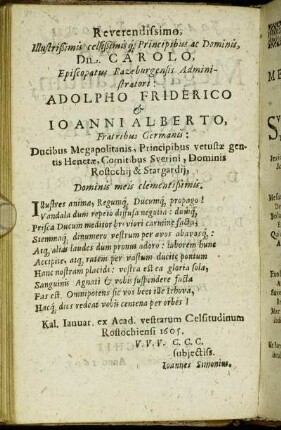 Reverendissimo,
Illustrißimis celsißimisq́; Principibus ac Dominis,
Dn. CAROLO,
Episcopatus Razeburgensis Admini-
stratori:
ADOLPHO FRIDERICO
&
IOANNI ALBERTO,
Fratribus Germanis:
Ducibus Megapolitanis, Principibus vetustæ gen-
tis Henetæ, Comitibus Sverini, Dominis
Rostochij & Stargardij,
Dominis meis clementißimis.
Illustres animæ, Regumq́, Ducumq́, propago!
Vandala dum repeto diffusa negotia: dumq́,
Prisca Ducum meditor breviori carmine facta:
Stemmaq́, dinumero vestrum per avos atavosq́:
Atq, alias laudes dum pronus adoro: laborem hunc
Accipite, atq, ratem per vastum ducite pontum
Hanc nostram placidi: vestra est ea gloria sola,
Sanguinis Agnati & vobis suspendere facta
Fas est. Omnipotens sic vos beet ille Iehova,
Hacq́, dies redeat vobis centena per orbes!
Kal. Ianuar. ex Acad. vestrarum Celsitudinum
Rostochiensi 1605.
V. V. V. C. C. C.
subjectiss.
Ioannes Simonius.